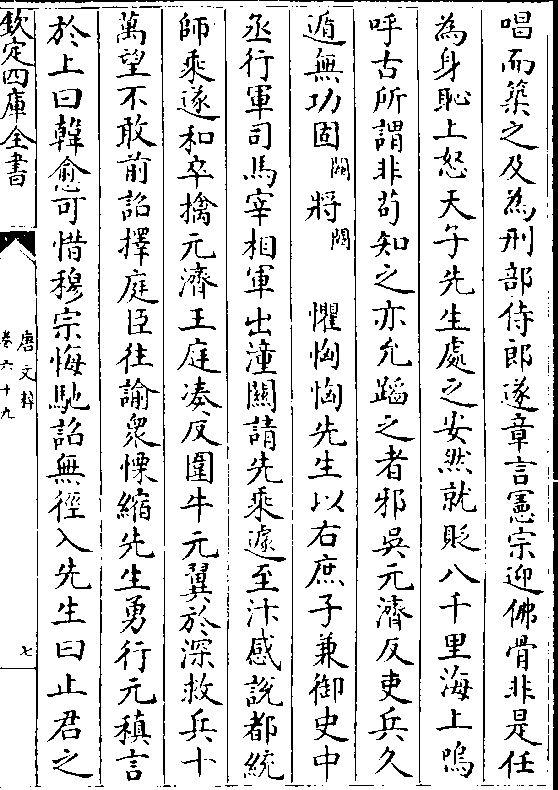 唱而築之及為刑部侍郎遂章言憲宗迎佛骨非是任
為身恥上怒天子先生處之安然就貶八千里海上嗚
呼古所謂非苟知之亦允蹈之者邪吳元濟反吏兵久
遁無功固闕將闕懼恟恟先生以右庶子兼御史中
丞行軍司馬宰相軍出潼關請先乘遽至汴感說都統
師乘遂和卒擒元濟王庭凑反圍牛元翼於深救兵十
萬望不敢前詔擇庭臣往諭衆慄縮先生勇行元稹言
於上曰韓愈可惜穆宗悔馳詔無徑入先生曰止君之
欽定四庫全書
唐文粹
卷六十九
七